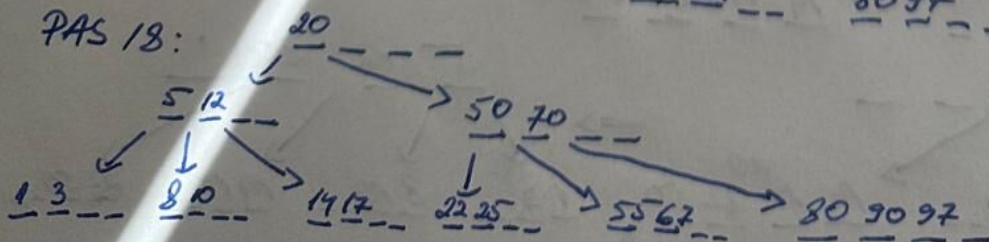 80 97 _ _
PAS 18:
20 _ _ _
5 12 _ _
50 70 _ _
1 3 _ _ 8 10 _ _ 14 17 _ _ 22 25 _ _ 55 67 _ _ 80 90 97 _